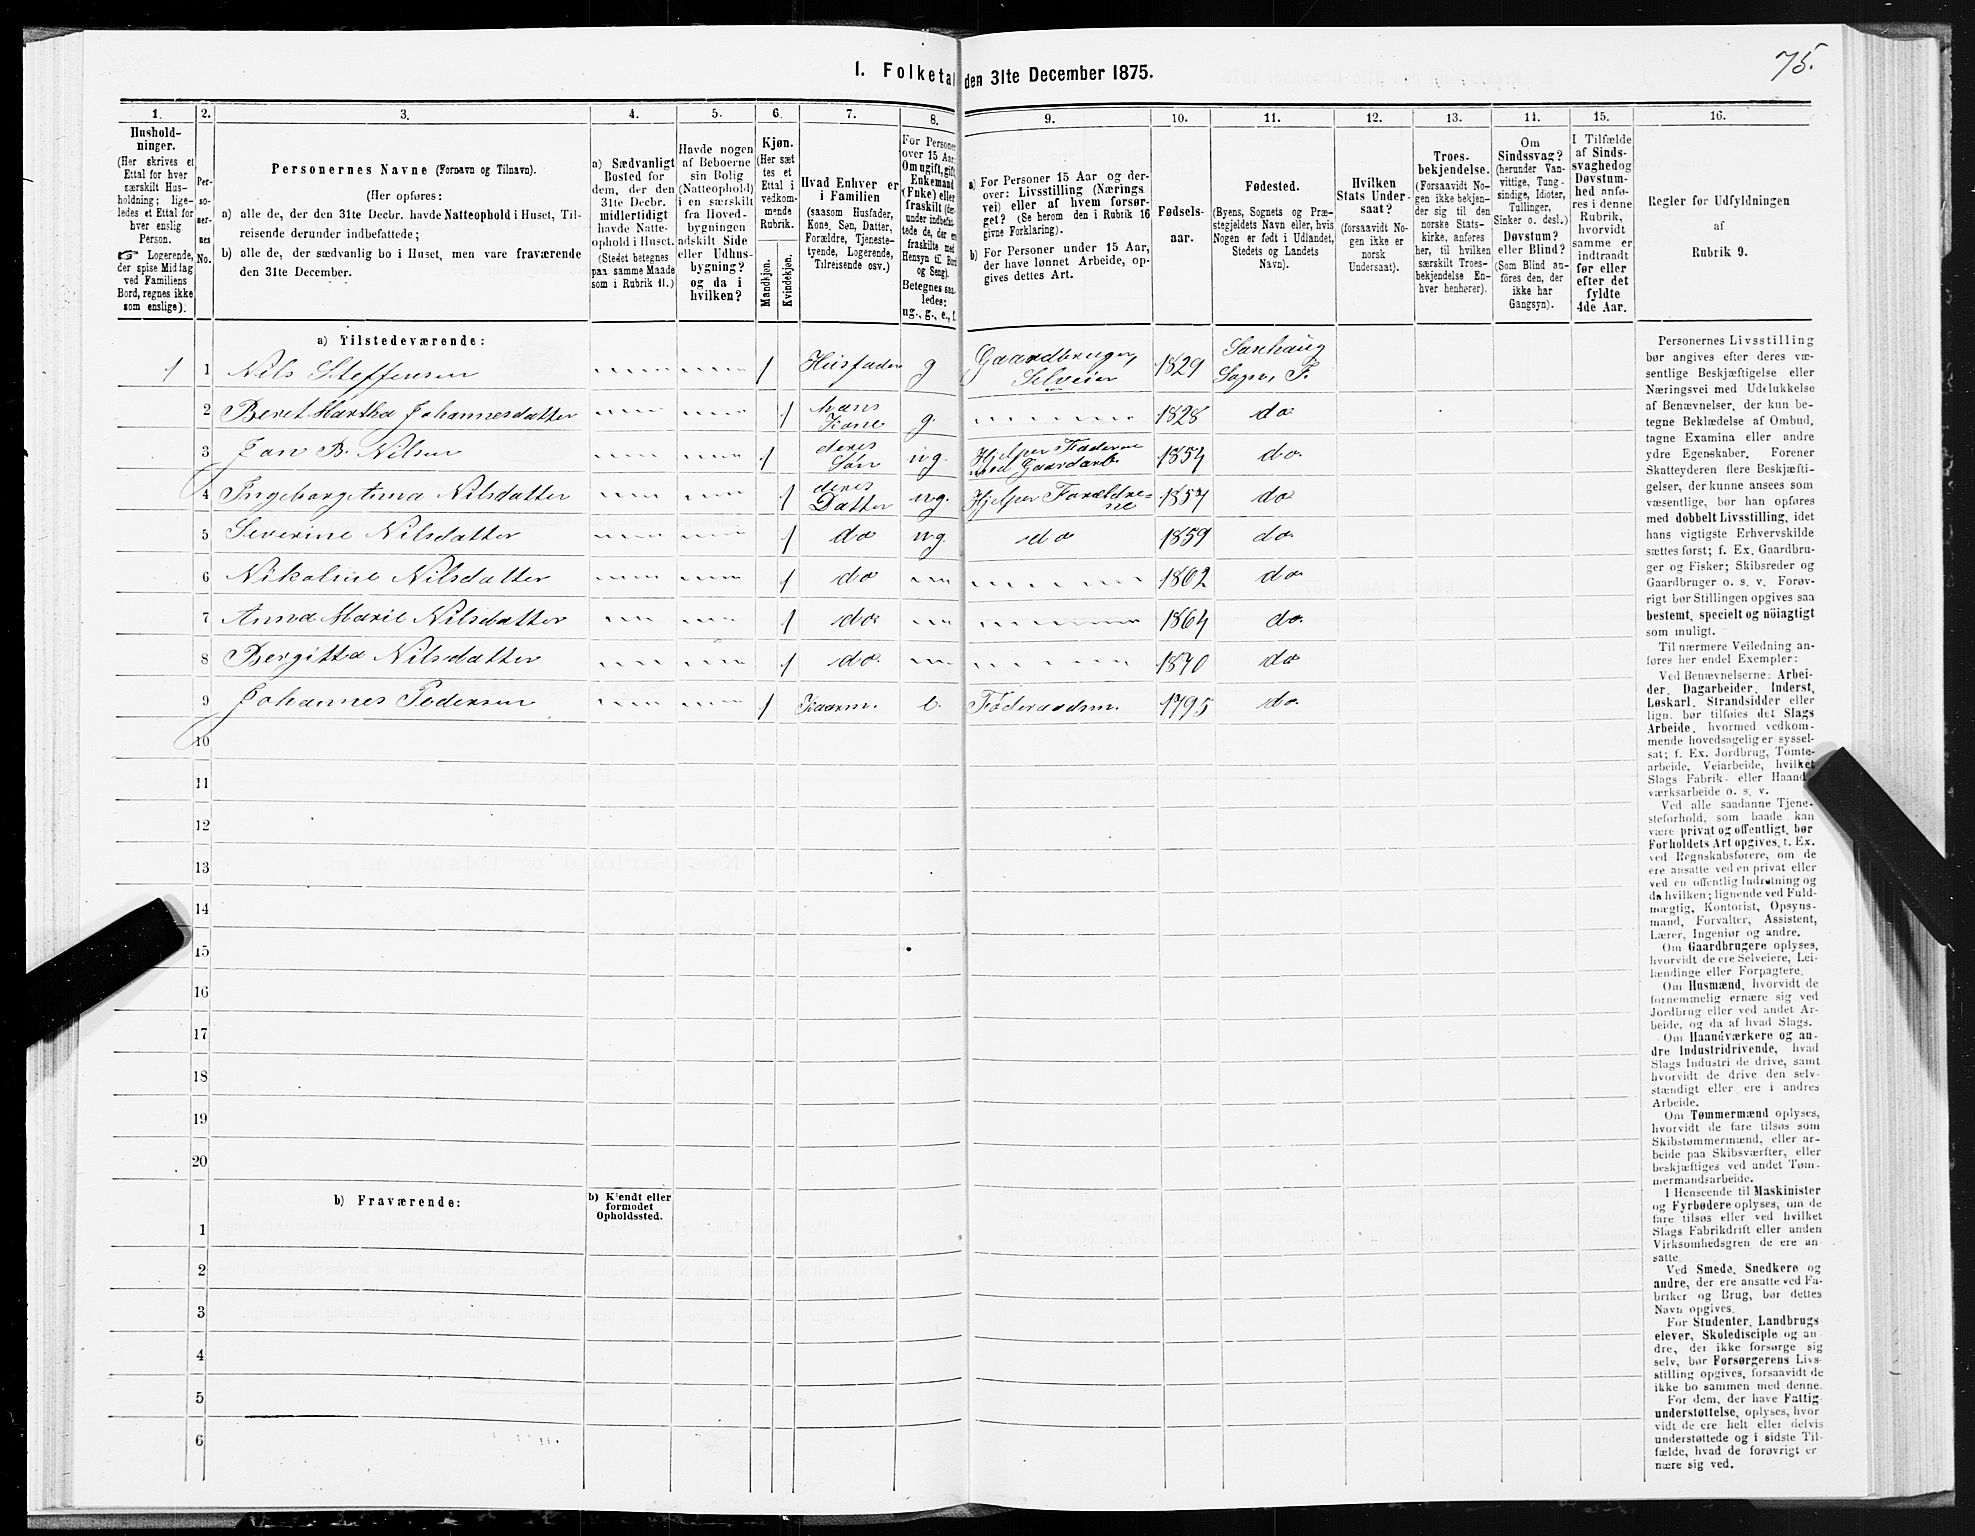 75.
I. Folketal den 31te December 1875.
1. 2. 3. 4. 5. 6. 7. 8. 9. 10. 11. 12. 13. 14. 15. 16.
Hushold-
ninger.
(Her skrives et
Ettal for hver
særskilt Hus-
holdning; lige-
ledes et Ettal for
hver enslig
Person.
☞ Logerende,
der spise Middag
ved Familiens
Bord, regnes ikke
som enslige).
Per-
so-
ner-
nes
No.
Personernes Navne (Fornavn og Tilnavn).
(Her opføres:
a) alle de, der den 31te Decbr. havde Natteophold i Huset, Til-
reisende derunder indbefattede;
b) alle de, der sædvanlig bo i Huset, men vare fraværende
den 31te December.
a) Sædvanligt
Bosted for
dem, der den
31te Decbr.
midlertidigt
havde Natte-
ophold i Huset.
(Stedet betegnes
paa samme Maade
som i Rubrik 11.)
Havde nogen
af Beboerne
sin Bolig
(Natteophold)
i en særskilt
fra Hoved-
bygningen
adskilt Side
eller Udhus-
bygning?
og da i
hvilken?
Kjøn.
(Her sæt
tes et
Ettal i
vedkom-
mende
Rubrik.
Mandkjøn.
Kvindekjøn.
Hvad Enhver er
i Familien
(saasom Husfader,
Kone, Søn, Datter,
Forældre, Tjeneste-
tyende, Logerende,
Tilreisende osv.)
For Personer
over 15 Aar:
Om ugift, gift,
Enkemand
(Enke) eller
fraskilt (der-
under indbefat-
tede de, der ere
fraskilte med
Hensyn til Bord
og Seng).
Betegnes saa-
ledes:
ug., g., e., f.
a) For Personer 15 Aar og der-
over: Livsstilling (Nærings
vei) eller af hvem forsør-
get? (Se herom den i Rubrik 16
givne Forklaring).
b) For Personer under 15 Aar,
der have lønnet Arbeide, op-
gives dettes Art.
Fødsels-
aar.
Fødested.
(Byens, Sognets og Præ-
stegjeldets Navn eller, hvis
Nogen er født i Udlandet,
Stedets og Landets
Navn).
Hvilken
Stats Under-
saat?
(forsaavidt No-
gen ikke er
norsk
Undersaat).
Troes-
bekjendelse.
(Forsaavidt No-
gen ikke bekjen-
der sig til den
norske Stats-
kirke, anføres
her, til hvilken
særskilt Troes-
bekjendelse En-
hver henhører).
Om
Sindssvag?
(herunder Van-
vittige, Tung-
sindige, Idioter,
Tullinger,
Sinker o. desl.)
Døvstum?
eller Blind?
(Som Blind an-
føres den, der
ikke har
Gangsyn).
I Tilfælde
af Sinds-
svaghed og
Døvstum-
hed anfø-
res i denne
Rubrik,
hvorvidt
samme er
indtraadt
før eller
efter det
fyldte
4de Aar.
Regler for Udfyldningen
af
Rubrik 9.
a) Tilstedeværende:
1 1 Nils Steffensen 1 Husfader g Gaardbruger, Selveier 1829 Saxhaug Sogn, P.
2 Beret Martha Johannesdatter 1 hans Kone g. 1828 do
3 Jon B. Nilsen 1 deres Søn ug. Hjelper Faderen med Gaardarb. 1854 do.
4 Ingeborg Anna Nilsdatter 1 deres Datter ug. Hjelper Forældre-ne 1857 do
5 Severine Nilsdatter 1 do ug. do 1859 do.
6 Nikoline Nilsdatter 1 do 1862 do.
7 Anna Marie Nilsdatter 1 do. 1864 do.
8 Bergitta Nilsdatter 1 do. 1870 do
9 Johannes Pedersen 1 Kaarm. e. Føderaadsm. 1795 do.
10
11
12
13
14
15
16
17
18
19
20
b) Fraværende:
b) Kjendt eller
formodet
Opholdssted.
1
2
3
4
5
6
Personernes Livsstilling
bør angives efter deres væ-
sentlige Beskjæftigelse eller
Næringsvei med Udelukkelse
af Benævnelser, der kun be-
tegne Beklædelse af Ombud,
tagne Examina eller andre
ydre Egenskaber. Forener
Skatteyderen flere Beskjæfti-
gelser, der kunne ansees som
væsentlige, bør han opføres
med dobbelt Livsstilling, idet
hans vigtigste Erhvervskilde
sættes først; f. Ex. Gaardbru-
ger og Fisker; Skibsreder og
Gaardbruger o. s. v. Forøv-
rigt bør Stillingen opgives saa
bestemt, specielt og nöiagtigt
som muligt.
Til nærmere Veiledning an-
føres her endel Exempler:
Ved Benævnelserne: Arbei-
der, Dagarbeider, Inderst,
Løskarl, Strandsidder eller
lign. bør tilføies det Slags
Arbeide, hvormed vedkom-
mende hovedsagelig er syssel-
sat; f. Ex. Jordbrug, Tomte-
arbeide, Veiarbeide, hvilket
Slags Fabrik- eller Haand-
værksarbeide o. s. v.
Ved alle saadanne Tjene-
steforhold, som baade kan
være privat og offentligt, bør
Forholdets Art opgives, t. Ex.
ved Regnskabsførere, om de
ere ansatte ved en privat eller
ved en offentlig Indretning og
da hvilken; lignende ved Fuld-
mægtig, Kontorist, Opsyns-
mand, Forvalter, Assistent,
Lærer, Ingeniør og andre.
Om Gaardbrugere oplyses,
hvorvidt de ere Selveiere, Lei-
lændinge eller Forpagtere.
Om Husmænd, hvorvidt de
fornemmelig ernære sig ved
Jordbrug eller ved andet Ar-
beide, og da af hvad Slags.
Om Haandværkere og an-
dre Industridrivende, hvad
Slags Industri de drive, samt
hvorvidt de drive den selv-
stændigt eller ere i andres
Arbeide.
Om Tømmermænd oplyses,
hvorvidt de fare tilsøs som
Skibstømmermænd, eller ar-
beide paa Skibsværfter, eller
beskjæftiges ved andet Tøm-
mermandsarbeide.
I Henseende til Maskinister
og Fyrbødere oplyses, om de
fare tilsøs eller ved hvilket
Slags Fabrikdrift eller anden
Virksomhedsgren de ere an-
satte.
Ved Smede, Snedkere og
andre, der ere ansatte ved Fa-
briker og Brug, bør dettes
Navn opgives.
For Studenter, Landbrugs
elever, Skoledisciple og an-
dre, der ikke forsørge sig
selv, bør Forsørgerens Livs-
stilling opgives, forsaavidt de
ikke bo sammen med denne.
For dem, der have Fattig-
understøttelse, oplyses, hvor
vidt de ere helt eller delvis
understøttede og i sidste Til-
fælde, hvad de forøvrigt er
nære sig ved.